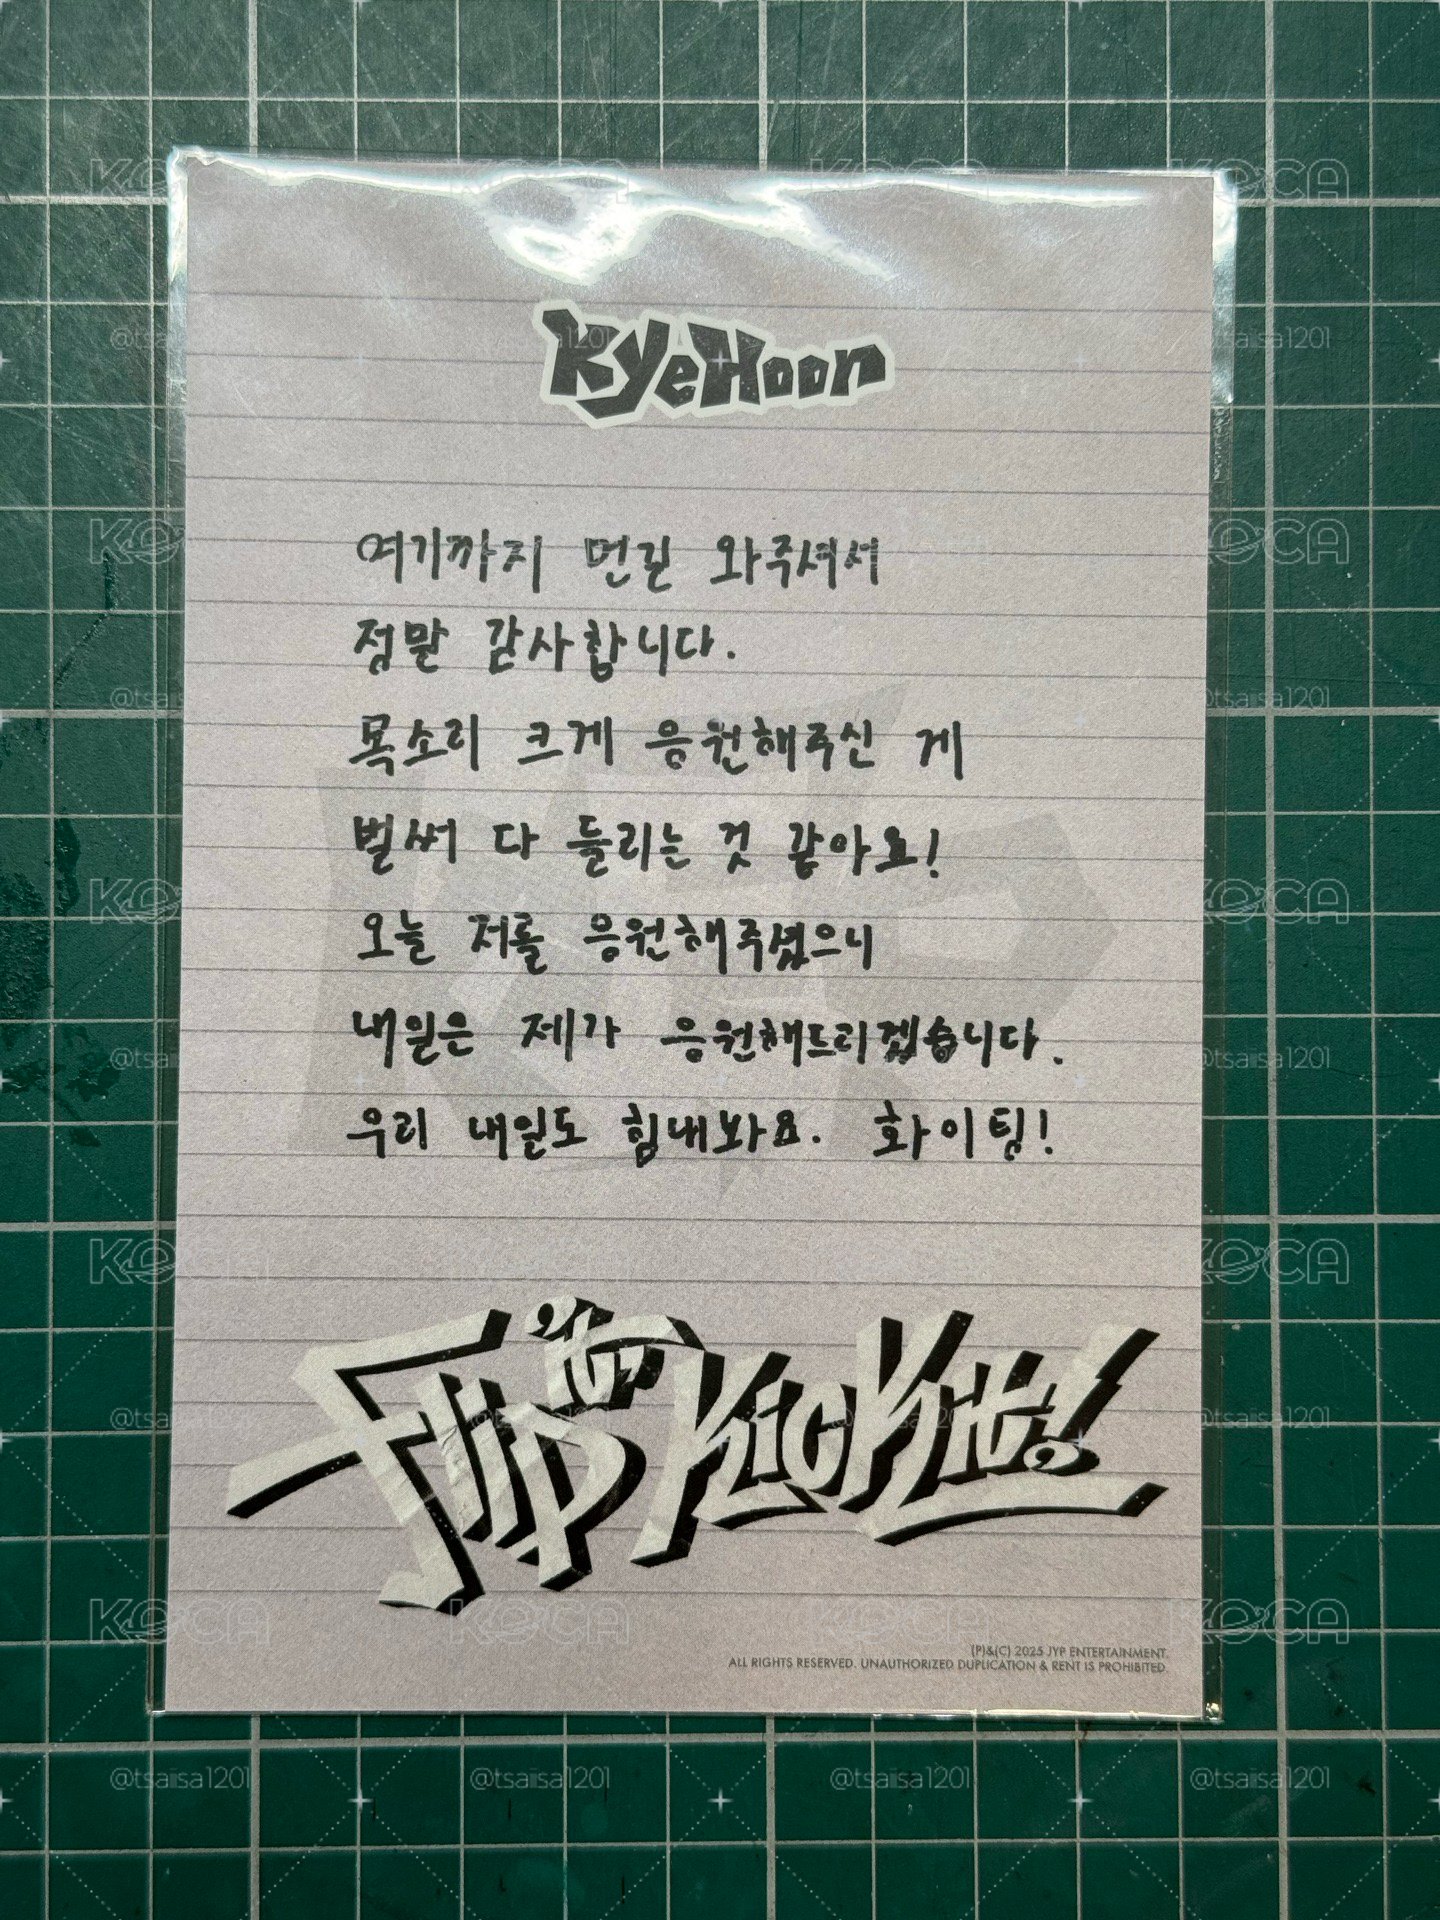 KyeHoon
여기까지 먼길 와주셔서
정말 감사합니다.
목소리 크게 응원해주신 게
벌써 다 들리는 것 같아요!
오늘 저를 응원해주셨으니
내일은 제가 응원해드리겠습니다.
우리 내일도 힘내봐요. 화이팅!
Flip it, Kick it!
(P)&(C) 2025 JYP ENTERTAINMENT.
ALL RIGHTS RESERVED. UNAUTHORIZED DUPLICATION & RENT IS PROHIBITED.
KOCA
@tsaiisa1201